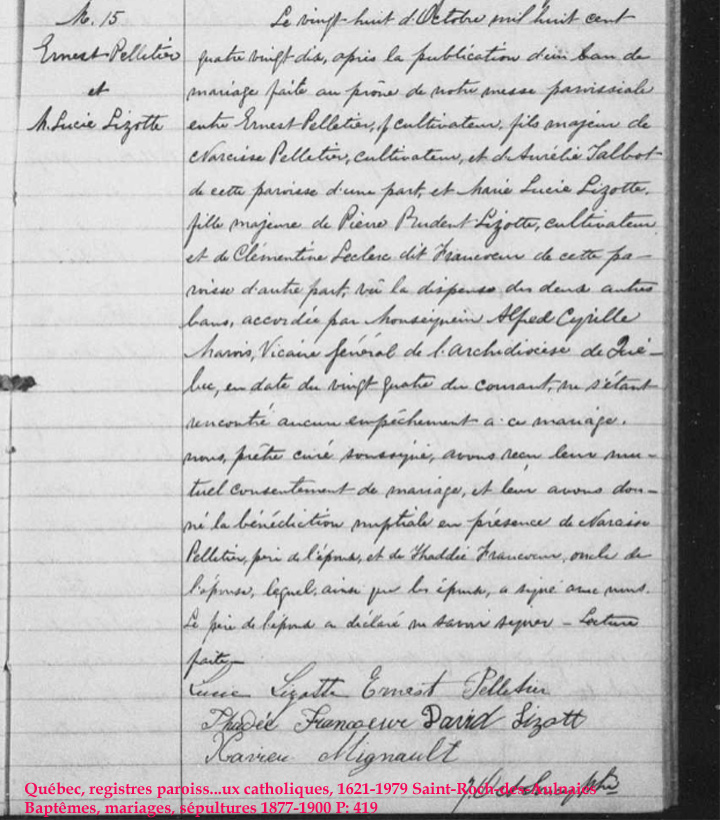 M. 15
Ernest Pelletier
et
M. Lucie Lizotte
Le vingt-huit d'Octobre mil huit cent
quatre vingt dix, après la publication d'un ban de
mariage faite au prône de notre messe paroissiale
entre Ernest Pelletier, cultivateur, fils majeur de
Narcisse Pelletier, cultivateur, et d'Aurélie Talbot
de cette paroisse d'une part, et Marie Lucie Lizotte,
fille majeure de Pierre Prudent Lizotte, cultivateur
et de Clémentine Leclerc dit Francoeur de cette pa-
roisse d'autre part, vu la dispense des deux autres
bans, accordée par Monseigneur Alfred Cyrille
Marois, Vicaire général de l'Archidiocèse de Qué-
bec, en date du vingt quatre du courant, ne s'étant
rencontré aucun empêchement à ce mariage,
nous, prêtre curé soussigné, avons reçu leur mu-
tuel consentement de mariage, et leur avons don-
né la bénédiction nuptiale en présence de Narcisse
Pelletier, père de l'époux, et de Thaddée Francoeur, oncle de
l'épouse, lequel, ainsi que les époux, a signé avec nous.
Le père de l'époux a déclaré ne savoir signer - Lecture
faite.
Lucie Lizotte Ernest Pelletier
Thadée Francoeur David Lizott
Xavier Mignault
ptre
Québec, registres paroiss...ux catholiques, 1621-1979 Saint-Roch-des-Aulnaies
Baptêmes, mariages, sépultures 1877-1900 P: 419